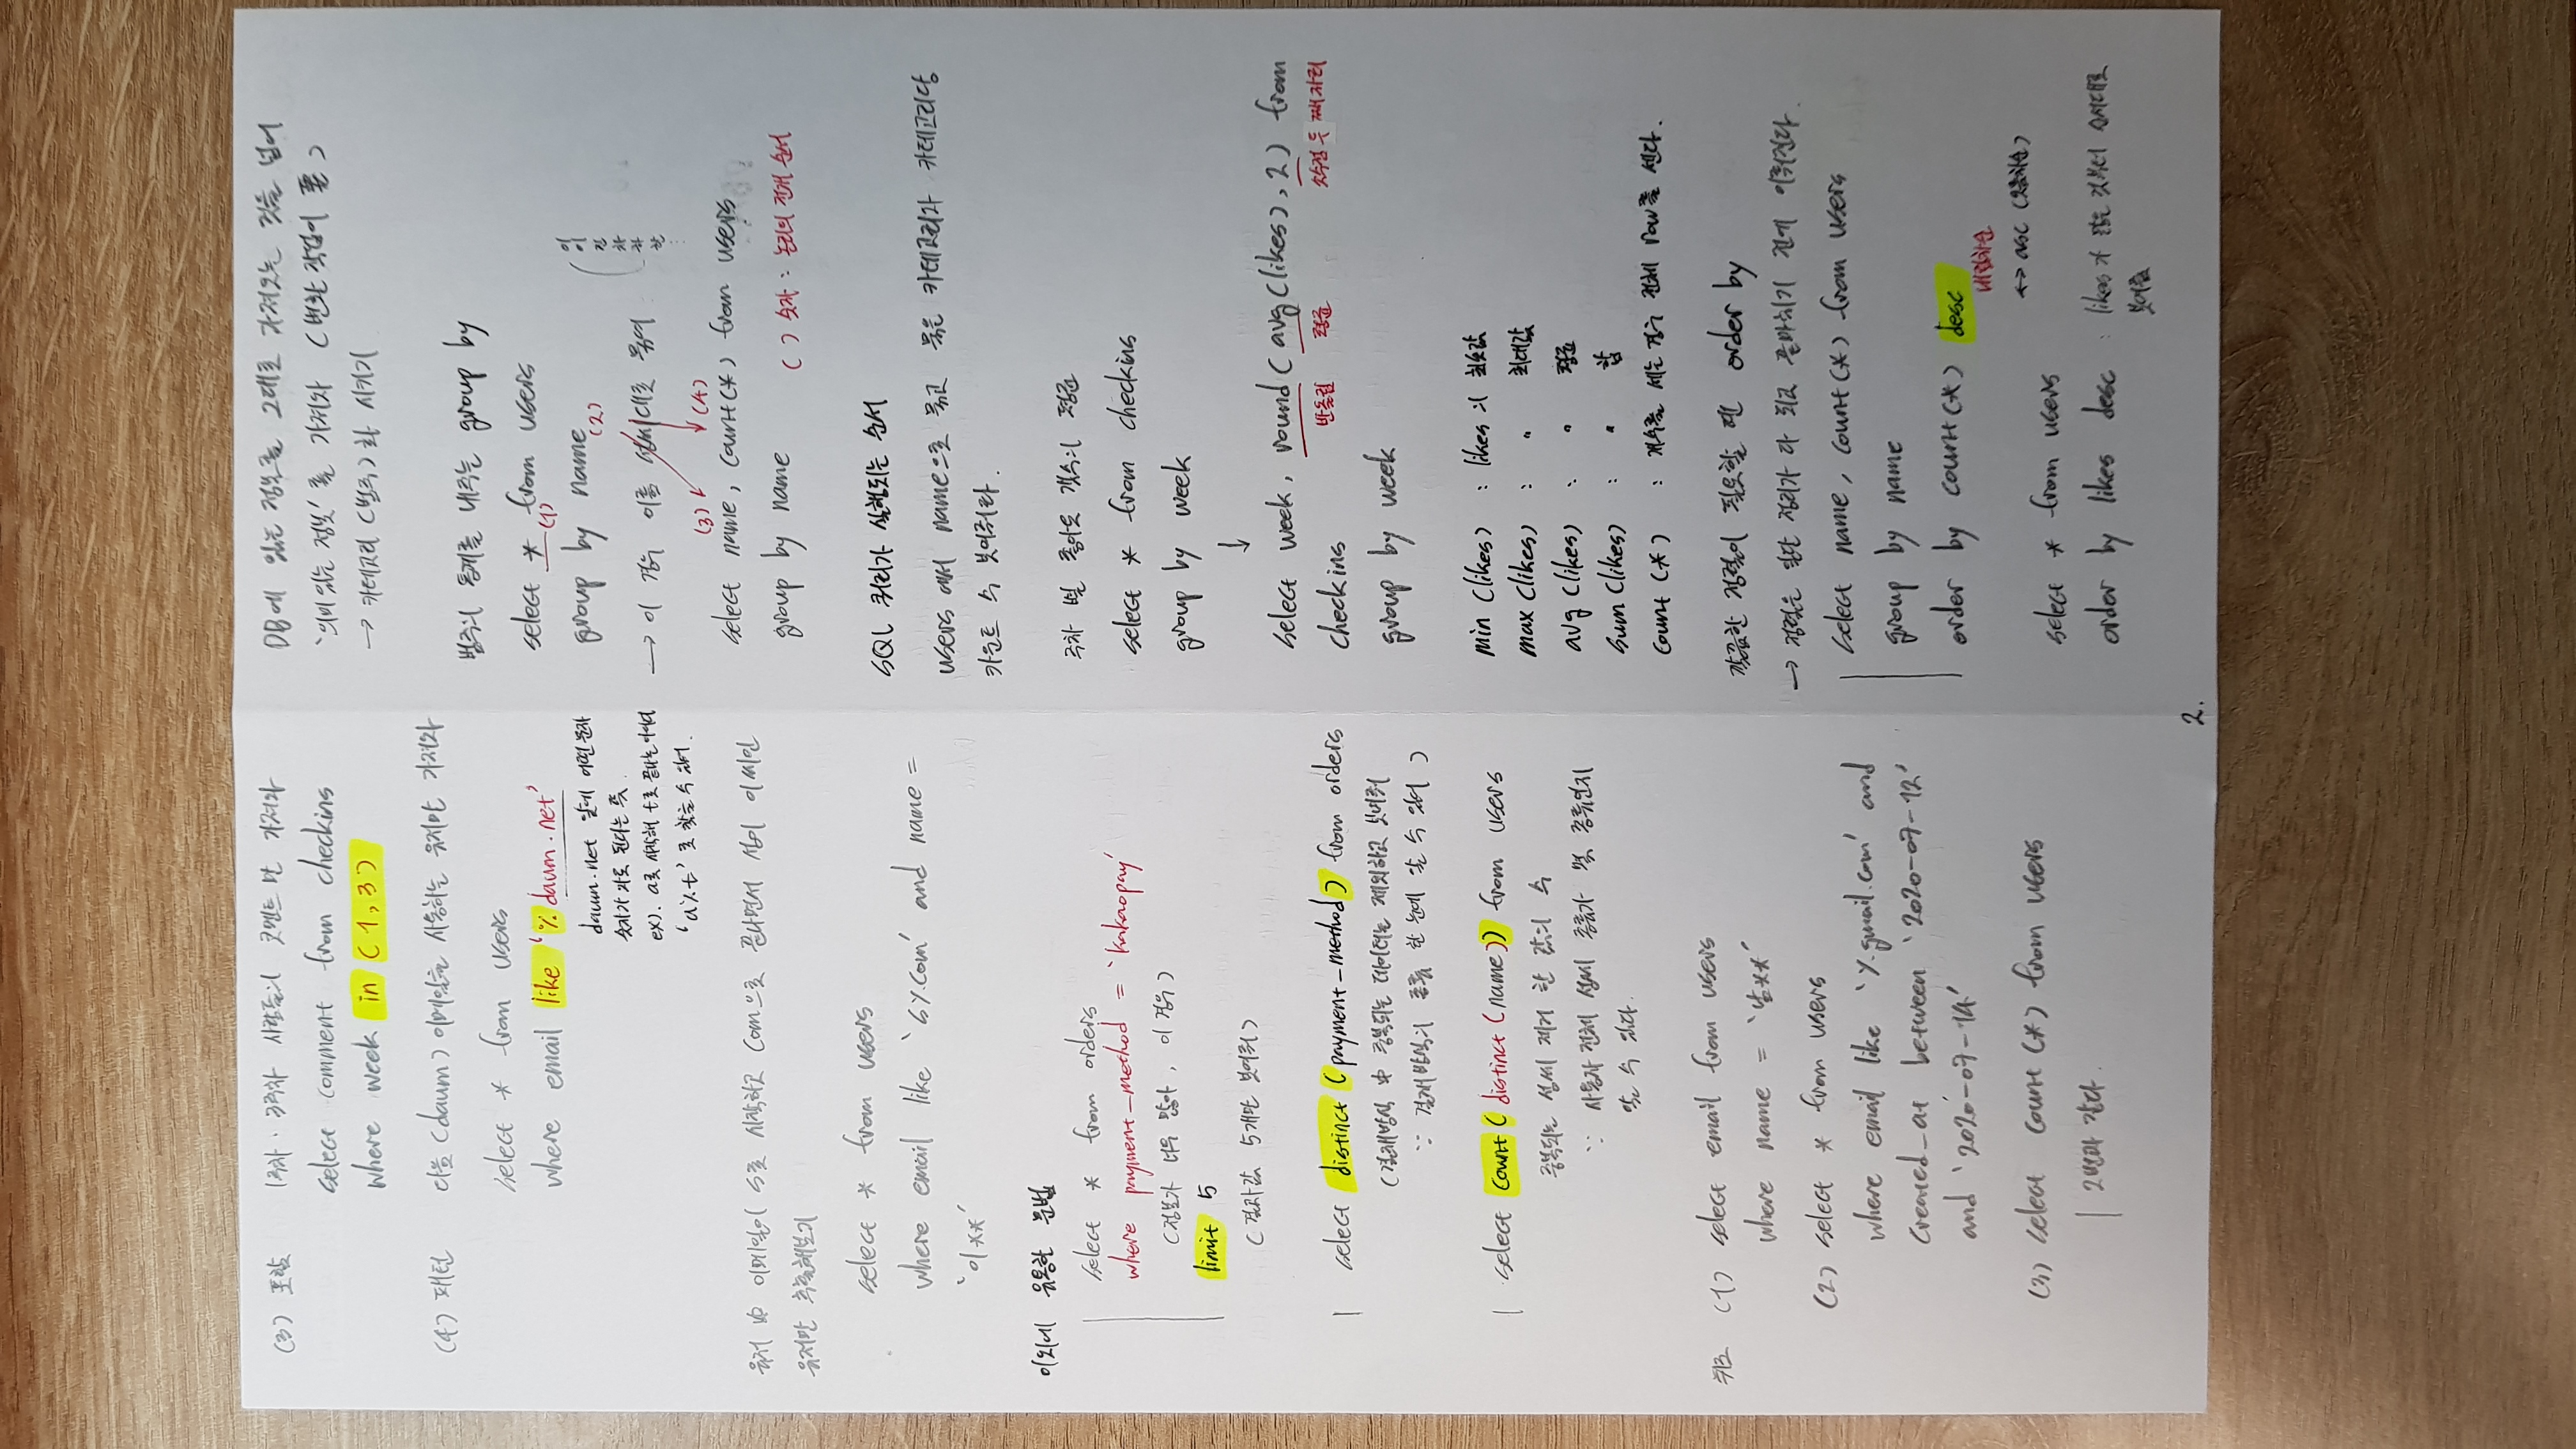 (3) 포함 1주차·3주차 사람들의 코멘트만 가져와
select comment from checkins
where week in (1,3)
(4) 패턴 다음(daum) 이메일을 사용하는 유저만 가져와
select * from users
where email like '%daum.net'
daum.net 앞에 어떤 문자
숫자가 가도 된다는 뜻.
ex). a로 시작해 t로 끝나는 이메일
'a%t' 로 찾을 수 있어.
유저 中 이메일이 s로 시작하고 com으로 끝나면서 성이 이씨인
유저만 추출해보기
select * from users
where email like 's%com' and name =
'이**'
이외의 유용한 문법
select * from orders
where payment-method = 'kakaopay'
(정보가 너무 많아, 이 경우)
limit 5
(결과값 5개만 보여줘)
select distinct(payment-method) from orders
(결제방식 中 중복되는 데이터는 제외하고 보여줘
∵ 결제방식의 종류 한 눈에 알 수 있어)
select count(distinct(name)) from users
중복되는 성씨 제거 한 값의 수
∵ 사용자 전체 성씨 종류가 몇 종류인지
알 수 있다.
퀴즈 (1) select email from users
where name = '남**'
(2) select * from users
where email like '%gmail.com' and
created_at between '2020-07-12'
and '2020-07-14'
(3) select count(*) from users
2번과 같다.
DB에 있는 정보를 그대로 가져오는 것을 넘어
'의미있는 정보'를 가져와 (변환 작업이 要)
→ 카테고리(범주)화 시키기
범주의 통계를 내주는 group by
select * from users
(1)
group by name
(2)
→ 이 경우 이름 대로 묶여
이
김
차
(3) (4)
select name, count(*) from users
group by name
( ) 숫자 : 논리의 전개 순서
SQL 쿼리가 실행되는 순서
users 에서 name으로 묶고 묶은 카테고리와 카테고리당
카운트 수 보여줘라.
주차 별 좋아요 갯수의 평균
select * from checkins
group by week
↓
select week, round(avg(likes),2) from
반올림 평균 소수점 두 째자리
checkins
group by week
min (likes) : likes의 최솟값
max (likes) : 〃 최대값
avg (likes) : 〃 평균
sum (likes) : 〃 합
count (*) : 개수를 세는 경우 전체 row를 센다.
깔끔한 정렬이 필요할 땐 order by
→ 정렬은 일단 정리가 다 되고 끝마치기 전에 이뤄진다.
select name, count(*) from users
group by name
order by count(*) desc
내림차순
↔ asc (오름차순)
select * from users
order by likes desc : likes가 많은 것부터 순서대로
보여줌
2.